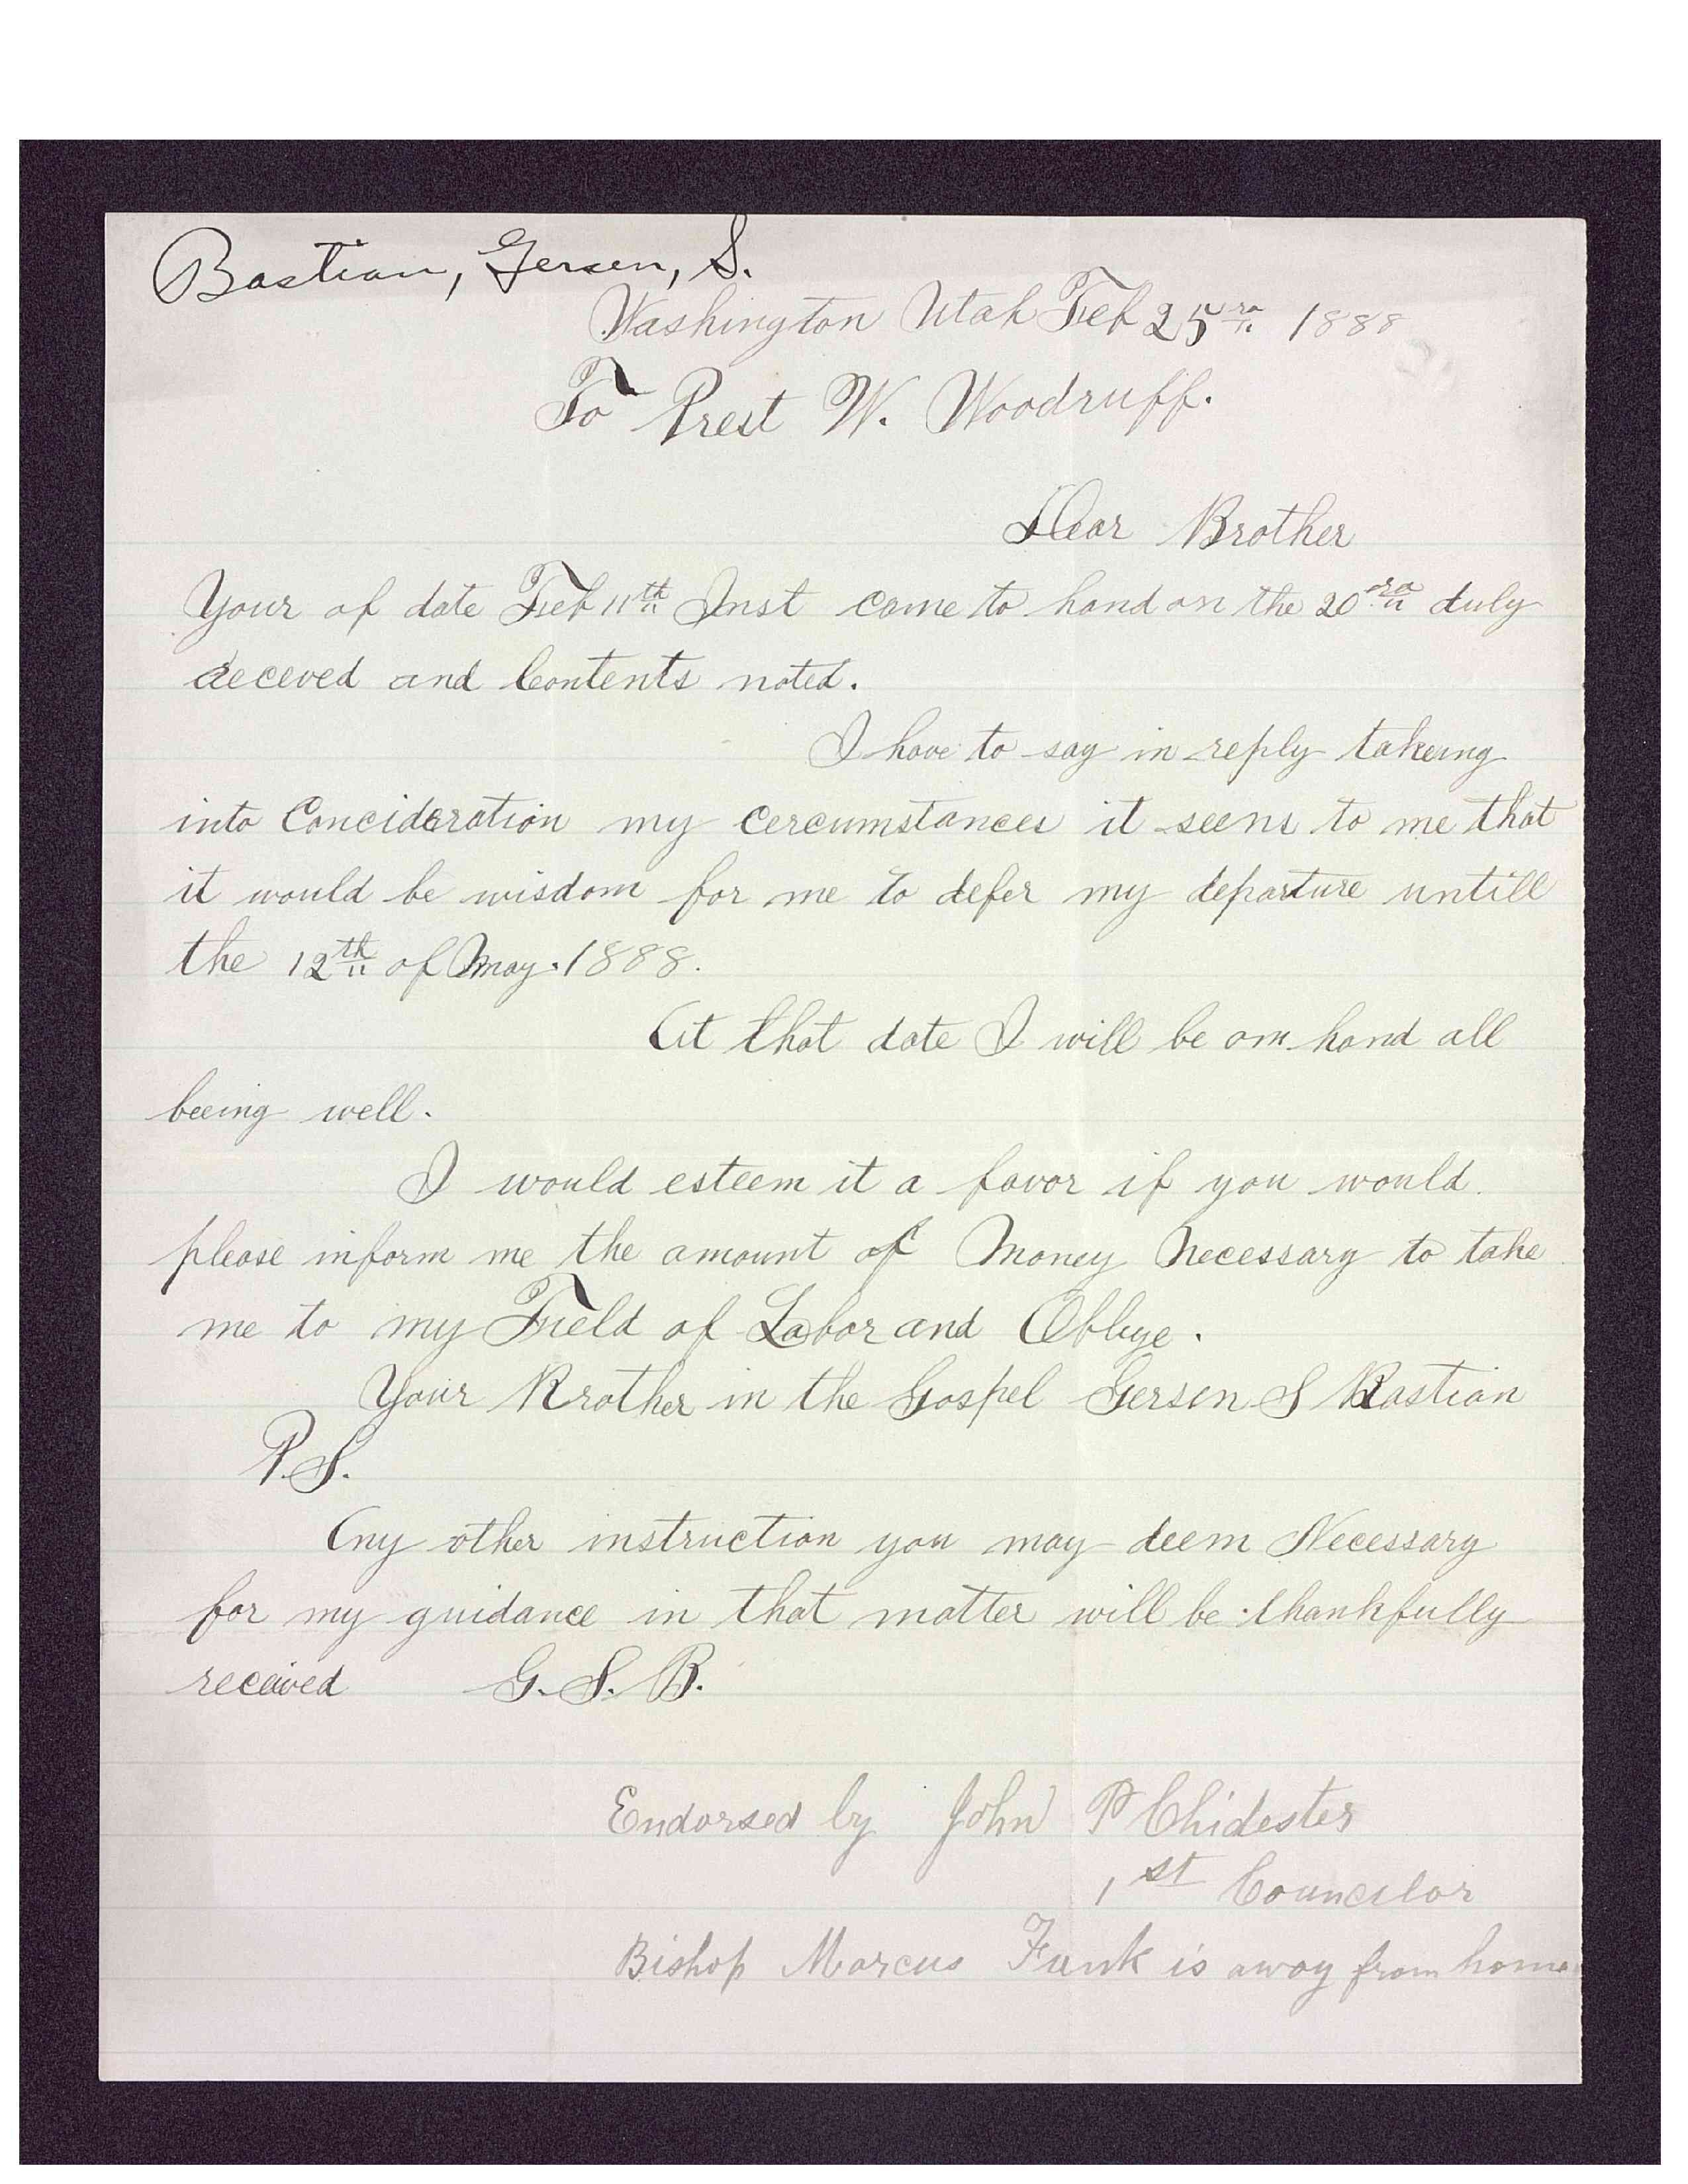 Bastian, Gersen, S.
Washington Utah Feb 25ra 1888
To Prest W. Woodruff.
Dear Brother
Your of date Feb 11th Inst came to hand on the 20ra duly
receved and Contents noted.
I have to say in reply takeing
into Concideration my cercumstances it seems to me that
it would be wisdom for me to defer my departure untill
the 12th of May. 1888.
At that date I will be on hand all
beeing well.
I would esteem it a favor if you would
please inform me the amount of Money Necessary to take
me to my Field of Labor and Oblige.
Your Brother in the Gospel Gersen S Bastian
P.S.
Any other instruction you may deem Necessary
for my guidance in that matter will be thankfully
received G. S. B.
Endorsed by John P Chidester
1st Councilor
Bishop Marcus Funk is away from home